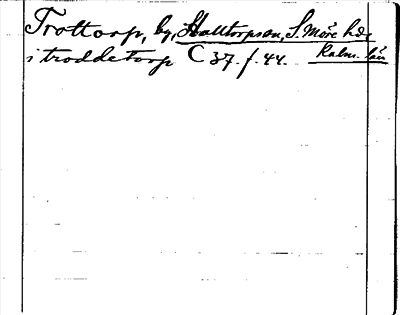 Trottorp, by, Halltorps sn, S. Möre hd
i troddetorp C 37. f. 44. Kalm. län